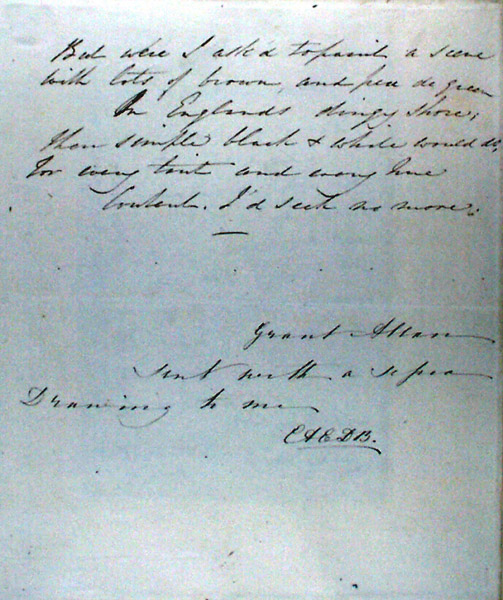 But were I ask'd to paint a scene
with lots of brown, and pea de green
On England's dingy shore;
then simple black & white would do,
for every tint and every hue
Content. I'd seek no more.
Grant Allan
sent with a sepia
Drawing to me
CAEDB.